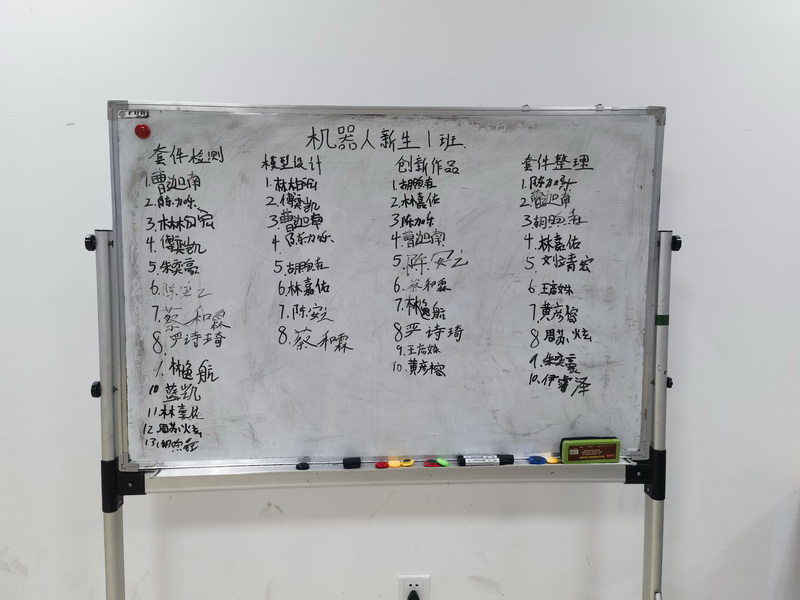 机器人新生1班
套件检测
1.曹迦南
2.陈加乐
3.林
4.傅奕凯
5.朱奕豪
6.陈宏
7.蔡和霖
8.严诗琦
9.林逸航
10 蓝凯
11.林嘉佑
12.周苏火炫
13.胡煦
模型设计
1.林
2.傅奕凯
3.曹迦南
4.陈加乐
5.胡煦
6.林嘉佑
7.陈宏
8.蔡和霖
创新作品
1.胡煦
2.林嘉佑
3.陈加乐
4.曹迦南
5.陈
6.蔡和霖
7.林逸航
8严诗琦
9.王彦
10.黄彦榕
套件整理
1.陈加乐
2.曹迦南
3.胡煦
4.林嘉佑
5.刘靖宏
6.王彦
7.黄彦榕
8.周苏火炫
9.朱奕豪
10.伊睿泽